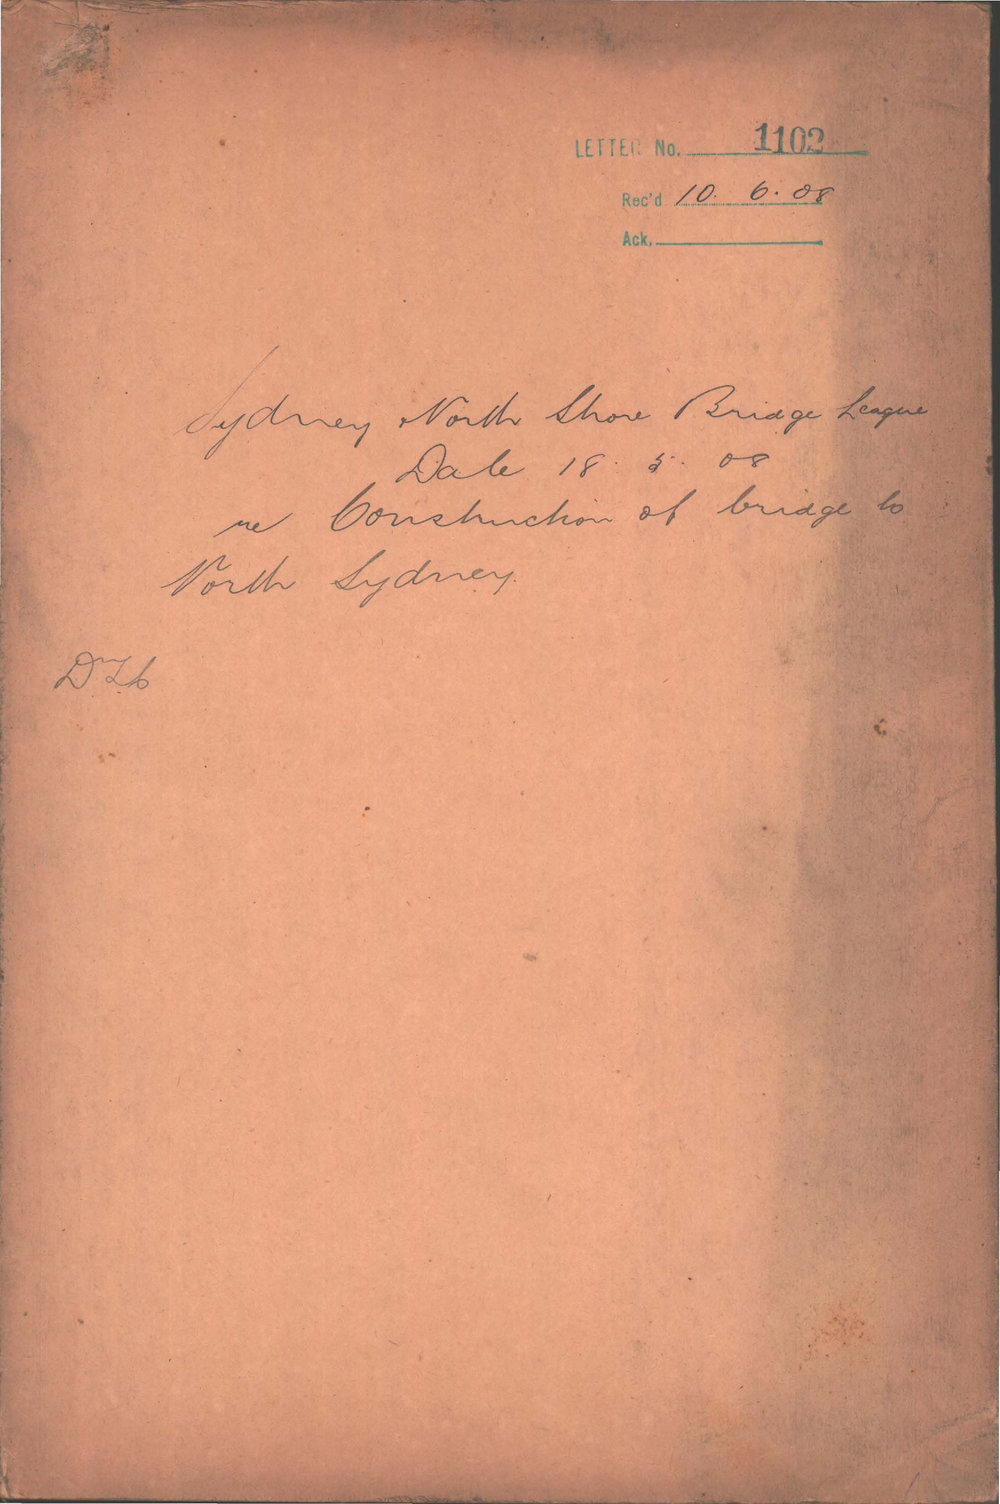 LETTER No. 1102
Rec'd 10. 6. 08
Ack.
Sydney North Shore Bridge League
Date 18. 5. 08
re Construction of bridge to
North Sydney.